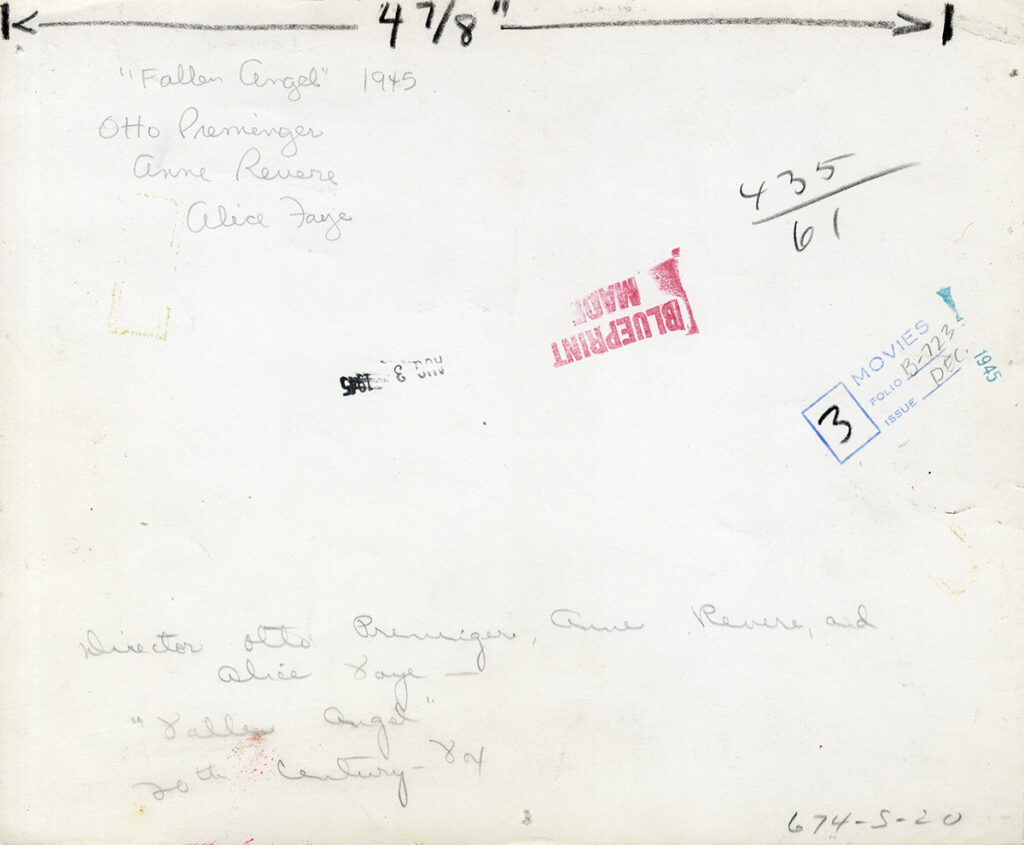 4 7/8"
"Fallen Angel" 1945
Otto Preminger
Anne Revere
Alice Faye
435
61
BLUEPRINT
MADE
AUG 3 1945
3
MOVIES
FOLIO B-723
ISSUE DEC. 1945
Director Otto Preminger, Anne Revere, and
Alice Faye —
"Fallen Angel"
20th Century-Fox
674-S-20